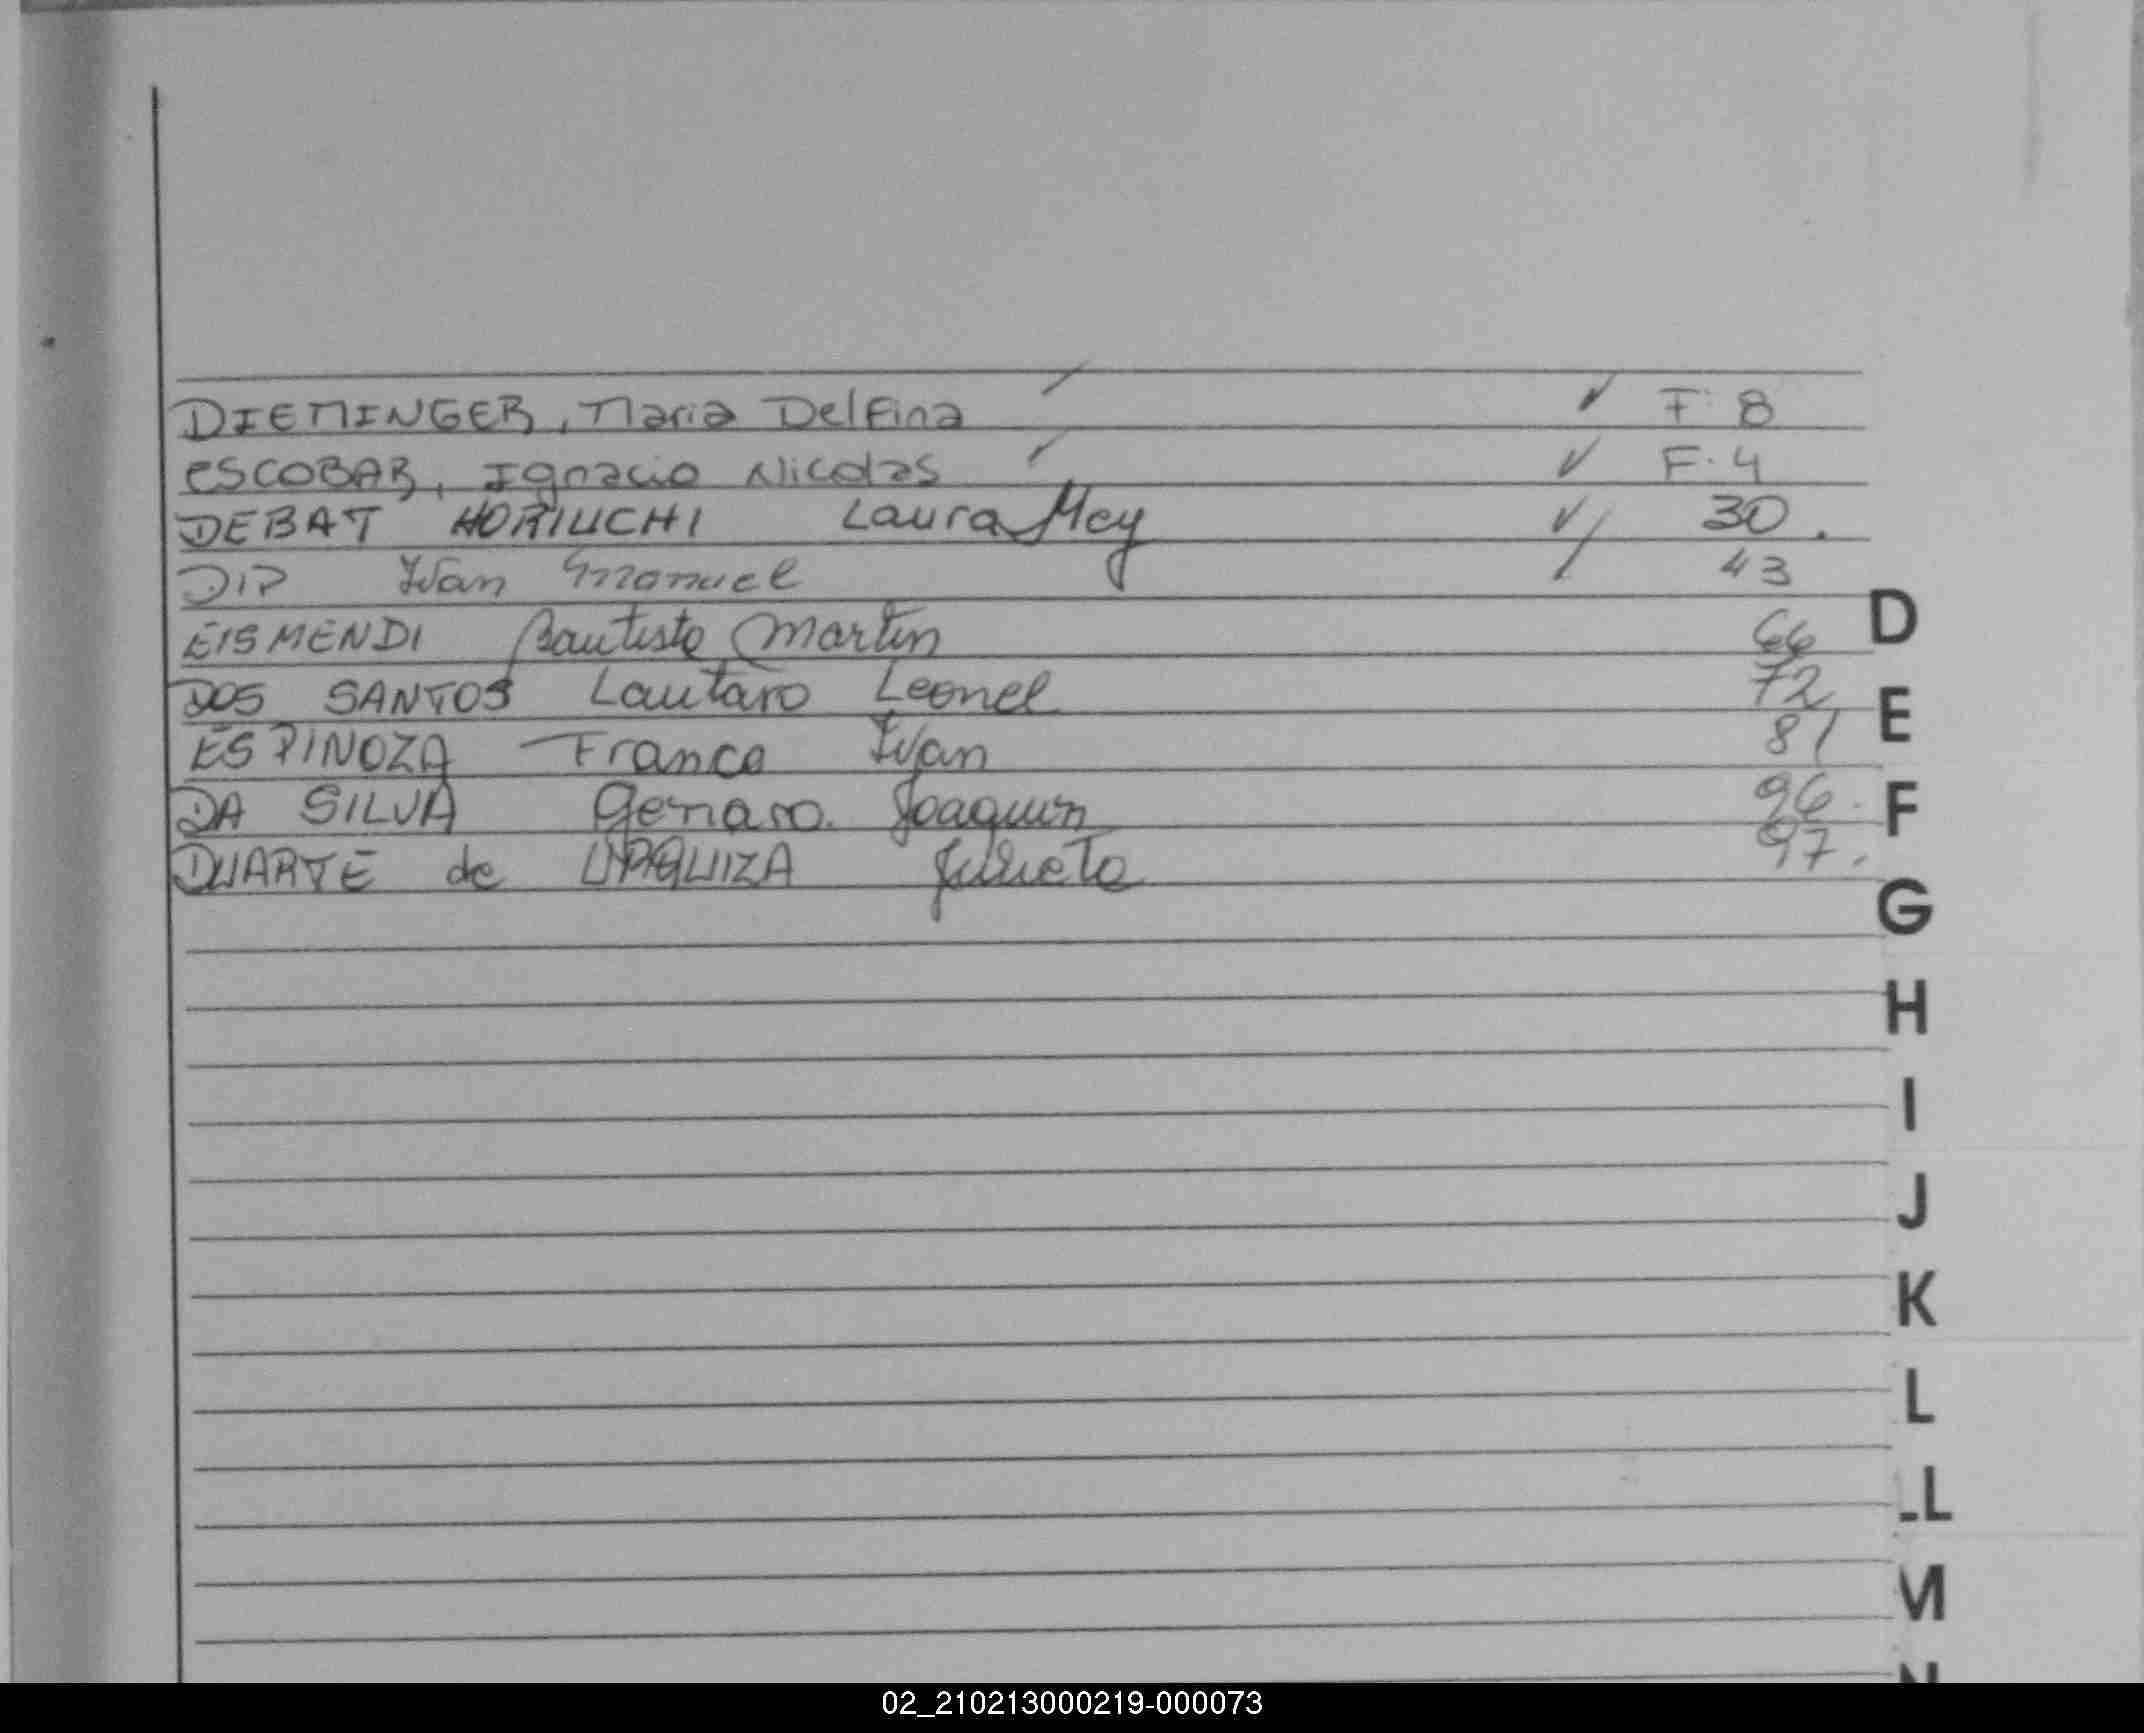 DIEMINGER, Maria Delfina ✓ F. 8
ESCOBAR, Ignacio Nicolas ✓ F. 4
DEBAT HORIUCHI Laura Mey ✓ 30.
DIP Ivan Emanuel 43
EISMENDI Bautista Martin 66
DOS SANTOS Lautaro Leonel 72
ESPINOZA Franco Ivan 81
DA SILVA Genaro Joaquin 96
DUARTE de URQUIZA Julieta 97.
D
E
F
G
H
I
J
K
L
LL
M
N
02_210213000219-000073